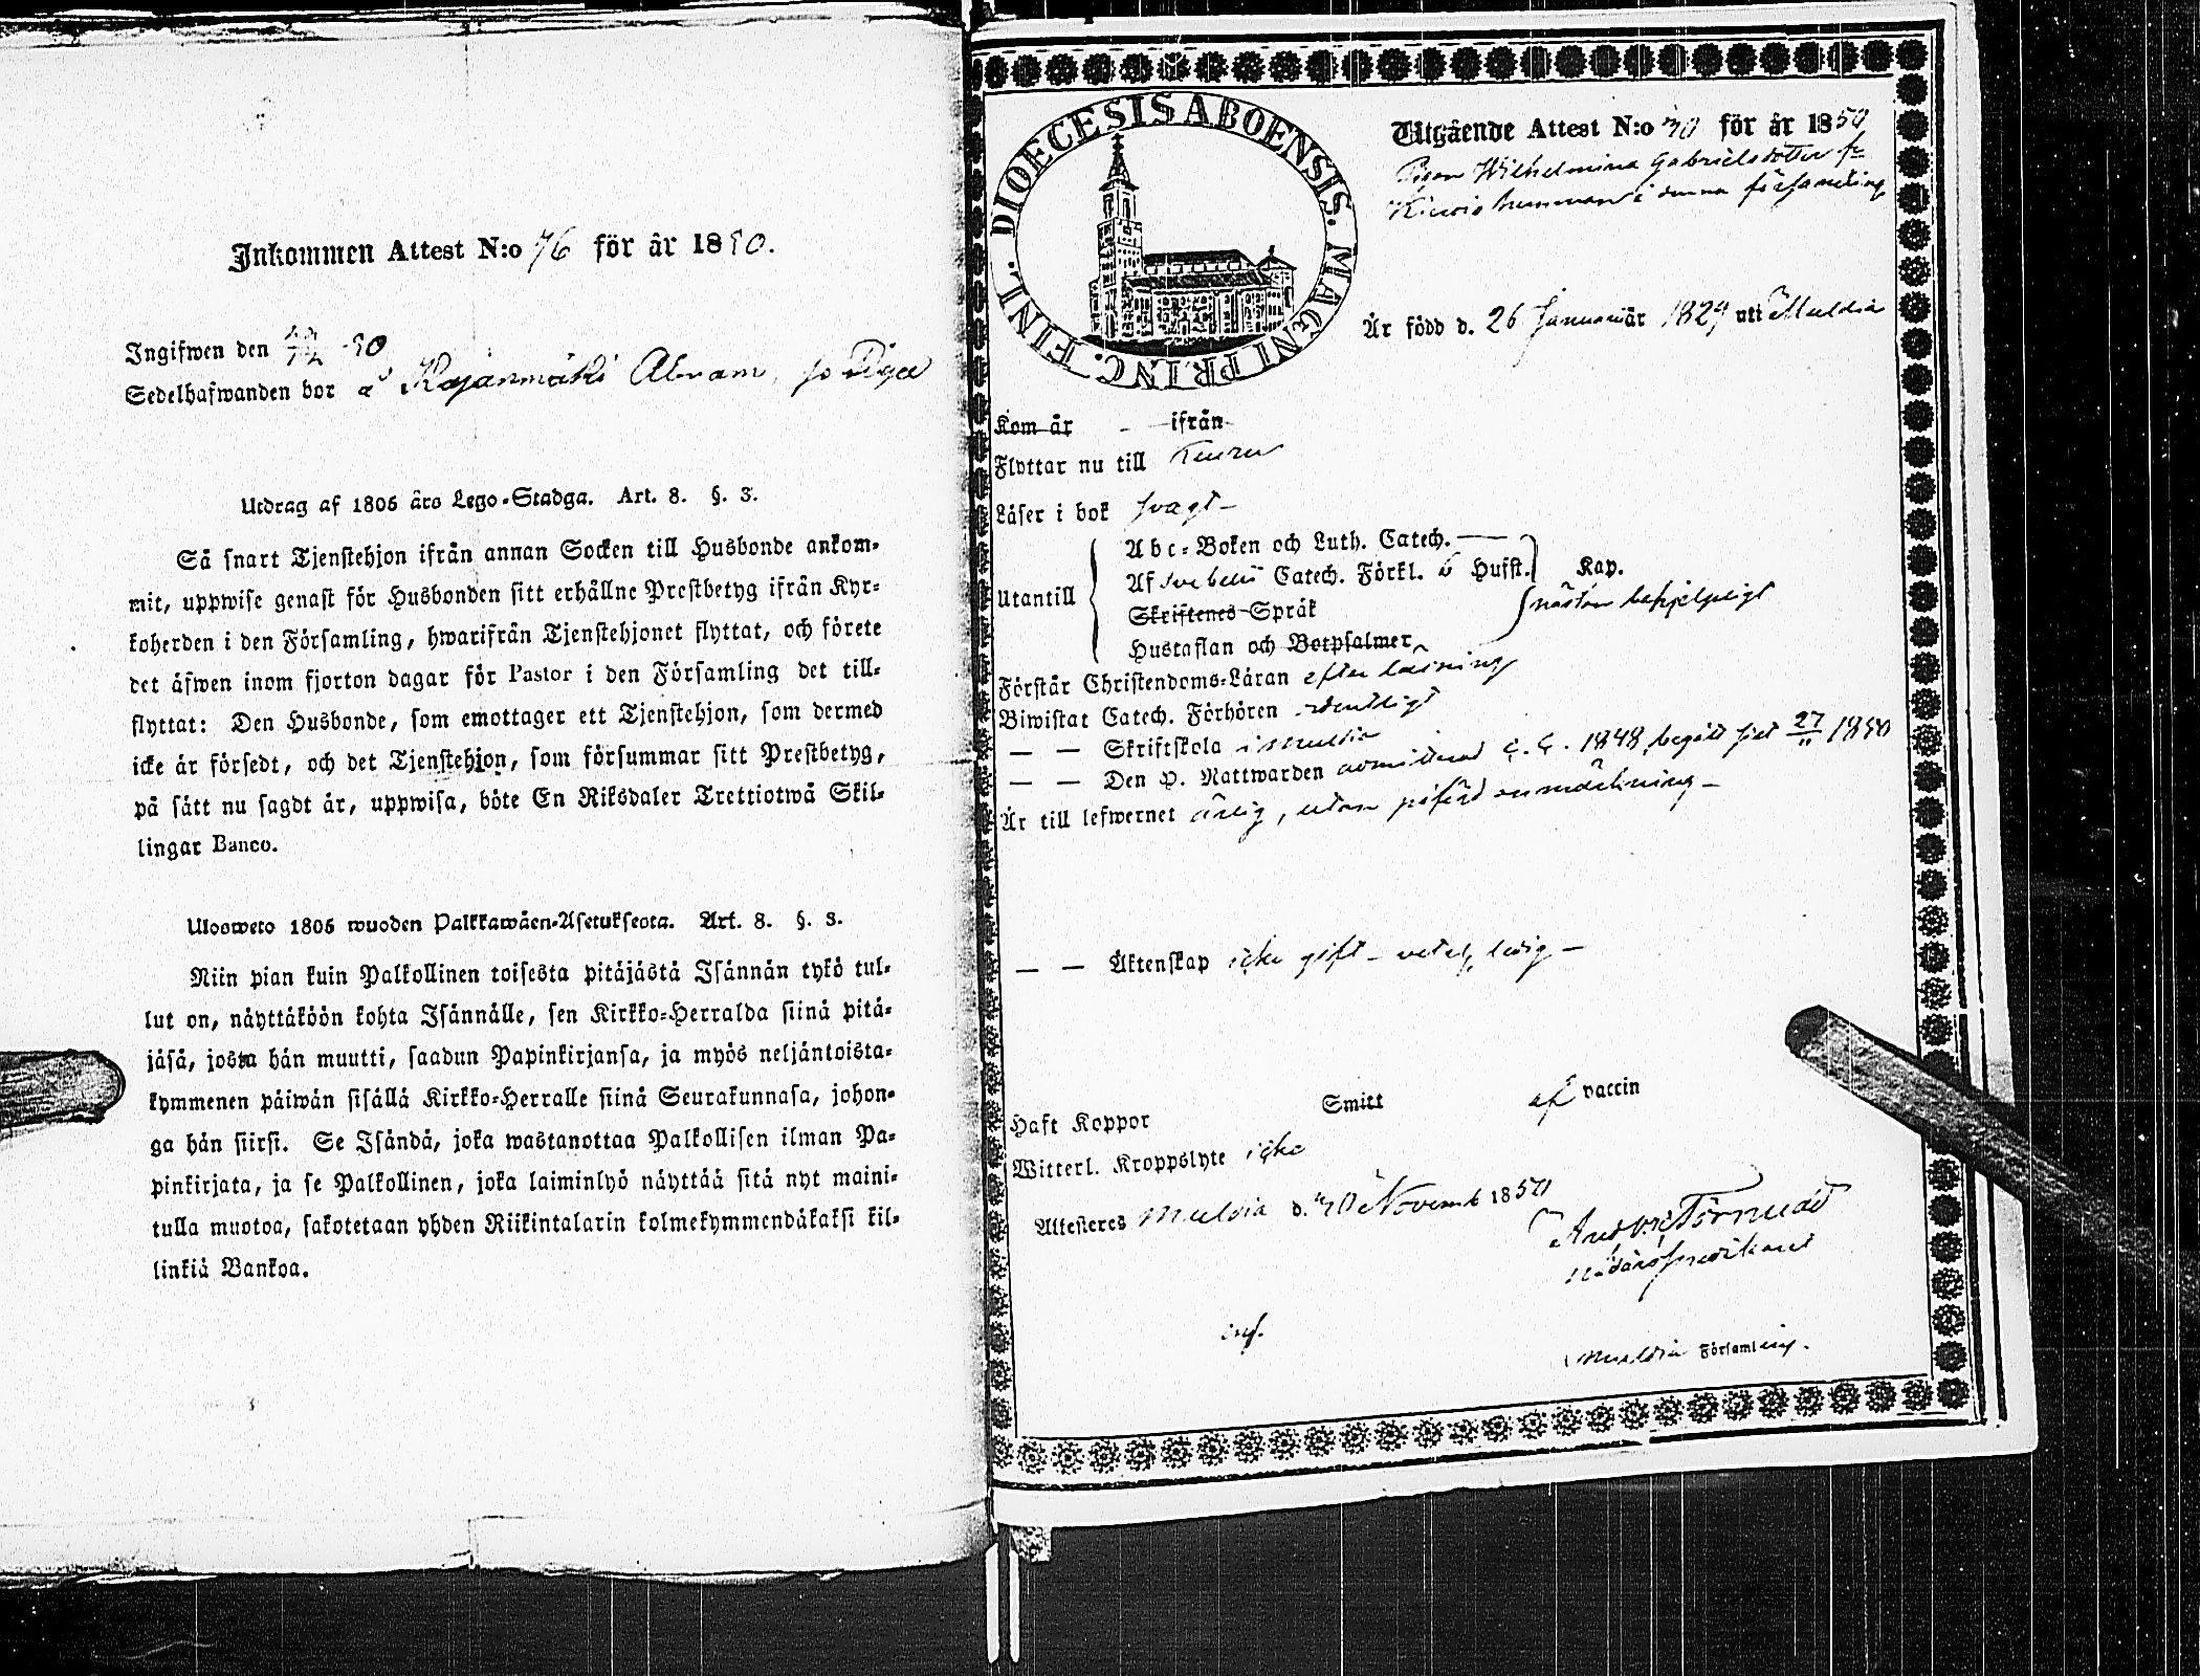 Inkommen Attest N:o 76 för år 1850.
Ingifwen den 50
Sedelhafwanden bor å Kajanmäki Abram, so Piga
Utdrag af 1805 års Lego-Stadga. Art. 8. §. 3.
Så snart Tjenstehjon ifrån annan Socken till Husbonde ankom-
mit, uppwise genast för Husbonden sitt erhållne Prestbetyg ifrån Kyr-
koherden i den Församling, hwarifrån Tjenstehjonet flyttat, och förete
det äfwen inom fjorton dagar för Pastor i den Församling det till-
flyttat: Den Husbonde, som emottager ett Tjenstehjon, som dermed
icke är försedt, och det Tjenstehjon, som försummar sitt Prestbetyg,
på sätt nu sagdt är, uppwisa, böte En Riksdaler Trettiotwå Skil-
lingar Banco.
Ulosweto 1805 wuoden Palkkawäen-Asetuksesta. Art. 8. §. 3.
Niin pian kuin Palkollinen toisesta pitäjästä Isännän tykö tul-
lut on, näyttäköön kohta Isännälle, sen Kirkko-Herralda siinä pitä-
jäsä, josta hän muutti, saadun Papinkirjansa, ja myös neljäntoista-
kymmenen päiwän sisällä Kirkko-Herralle siinä Seurakunnasa, johon-
ga hän siirsi. Se Isändä, joka wastanottaa Palkollisen ilman Pa-
pinkirjata, ja se Palkollinen, joka laiminlyö näyttää sitä nyt maini-
tulla muotoa, sakotetaan yhden Riikintalarin kolmekymmendäkaksi kil-
linkiä Bankoa.
DIOECESIS ABOENSIS. MAGNI PRINC. FINL.
Utgående Attest N:o 70 för år 1850
Pigan Wilhelmina Gabrielsdotter fr
i denna församling
Är född d. 26 Januariär 1829 uti Multia
Kom år - ifrån
Flyttar nu till Keuru
Läser i bok svagt
Utantill
Abc-Boken och Luth. Catech.
Af Svebelii Catech. Förkl. o Husst. Kap.
Skriftenes Språk
nästan behjelpligt
Hustaflan och Botpsalmer
Förstår Christendoms-Läran efter läsning
Biwistat Catech. Förhören ordentligt
— — Skriftskola i Multia
— — Den H. Nattwarden admitterad 1848, begått sist 27/11 1850
Är till lefwernet ärlig, utan påförd anmärkning
— — Äktenskap icke gift - ledig —
Haft Koppor Smitt af vaccin
Witterl. Kroppslyte icke
Attesteras Multia d. 30 Novemb 1850
And. Törnudd
Nådårspredikant
Multia Församling.